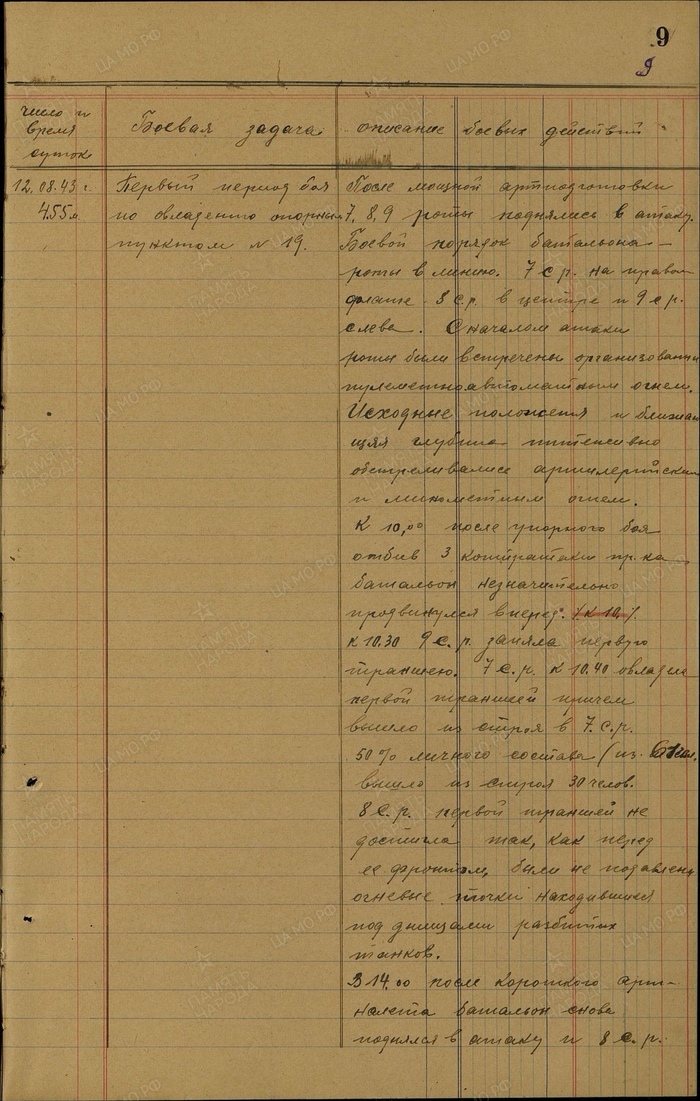 9
9
число и
время
суток
Боевая задача
описание боевых действий
12.08.43 г.
4.55 м.
Первый период боя
по овладению опорным
пунктом № 19.
После мощной артподготовки
7, 8, 9 роты поднялись в атаку.
Боевой порядок батальона –
роты в линию. 7 с р. на правом
фланге 8 с.р. в центре и 9 с р.
слева. С началом атаки
роты были встречены организованным
пулеметно-автоматным огнем.
Исходные положения и ближай
щяя глубина интенсивно
обстреливалисе артилерийским
и минометным огнем.
К 10,00 после упорного боя
отбив 3 контратаки пр-ка
батальон незначительно
продвинулся вперед. (к 10,)
к 10.30 9 с. р. заняла первую
траншею. 7 с. р. к 10.40 овладела
первой траншей причем
вышло из строя в 7. с. р.
50% личного состава (из 61 чел.
вышло из строя 30 челов.
8 с. р. первой траншей не
достигла так, как перед
ее фронтом, были не подавлены
огневые точки находившиеся
под днищами разбитых
танков.
В 14.00 после короткого арт-
налета батальон снова
поднялся в атаку и 8 с. р.
ЦА МО РФ
ПАМЯТЬ
НАРОДА